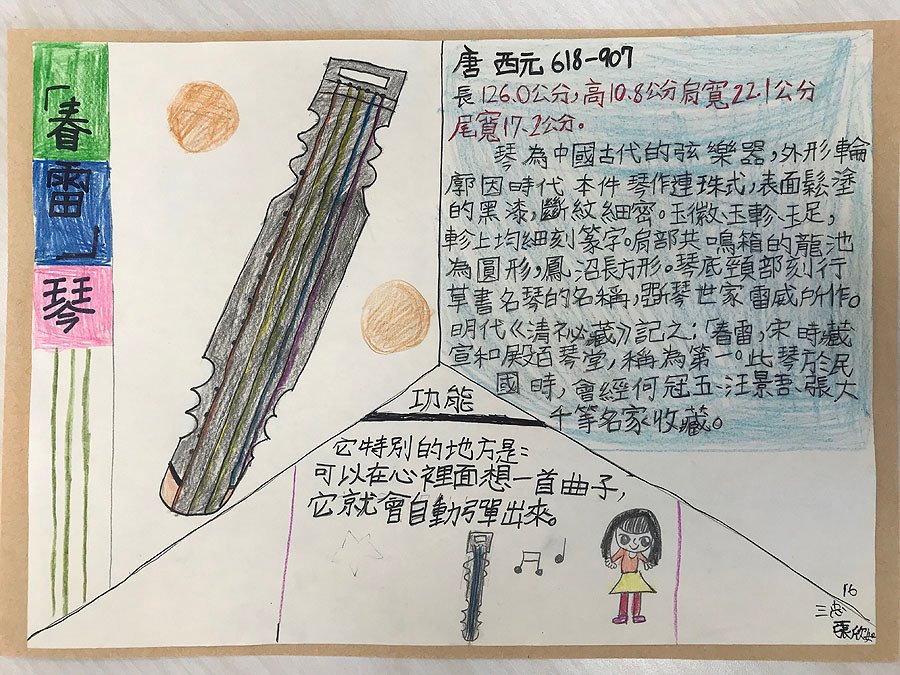 「春雷」琴
唐 西元 618-907
長126.0公分,高10.8公分肩寬22.1公分
尾寬17.2公分。
琴為中國古代的弦樂器,外形輪
廓因時代 本件琴作連珠式,表面鬆塗
的黑漆,斷紋細密。玉徽、玉軫、玉足,
軫上均細刻篆字。肩部共鳴箱的龍池
為圓形,鳳沼長方形。琴底頸部刻行
草書名琴的名稱,斵琴世家雷威所作。
明代《清祕藏》記之:「春雷,宋時藏
宣和殿百琴堂,稱為第一。此琴於民
國時,會經何冠五、汪景吾、張大
千等名家收藏。
功能
它特別的地方是:
可以在心裡面想一首曲子,
它就會自動彈出來。
16
三忠
張欣